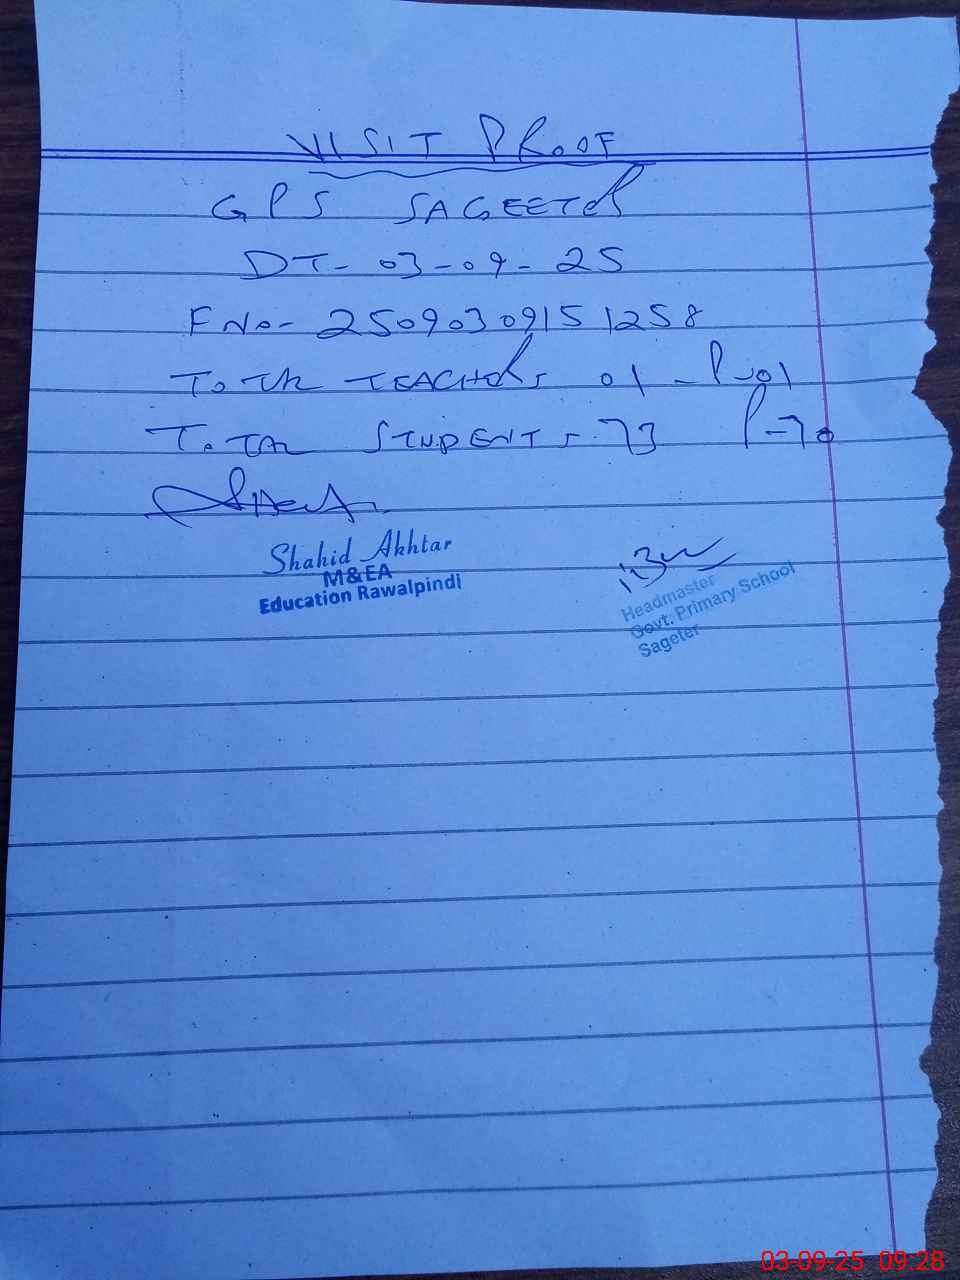 VISIT PROOF
GPS SAGEETER
DT- 03-09-25
F No- 25090309151258
TOTAL TEACHERS 01 - P-01
TOTAL STUDENTS 73 P-70
Shahid Akhtar
M&EA
Education Rawalpindi
Headmaster
Govt. Primary School
Sageter
03-09-25 09:28